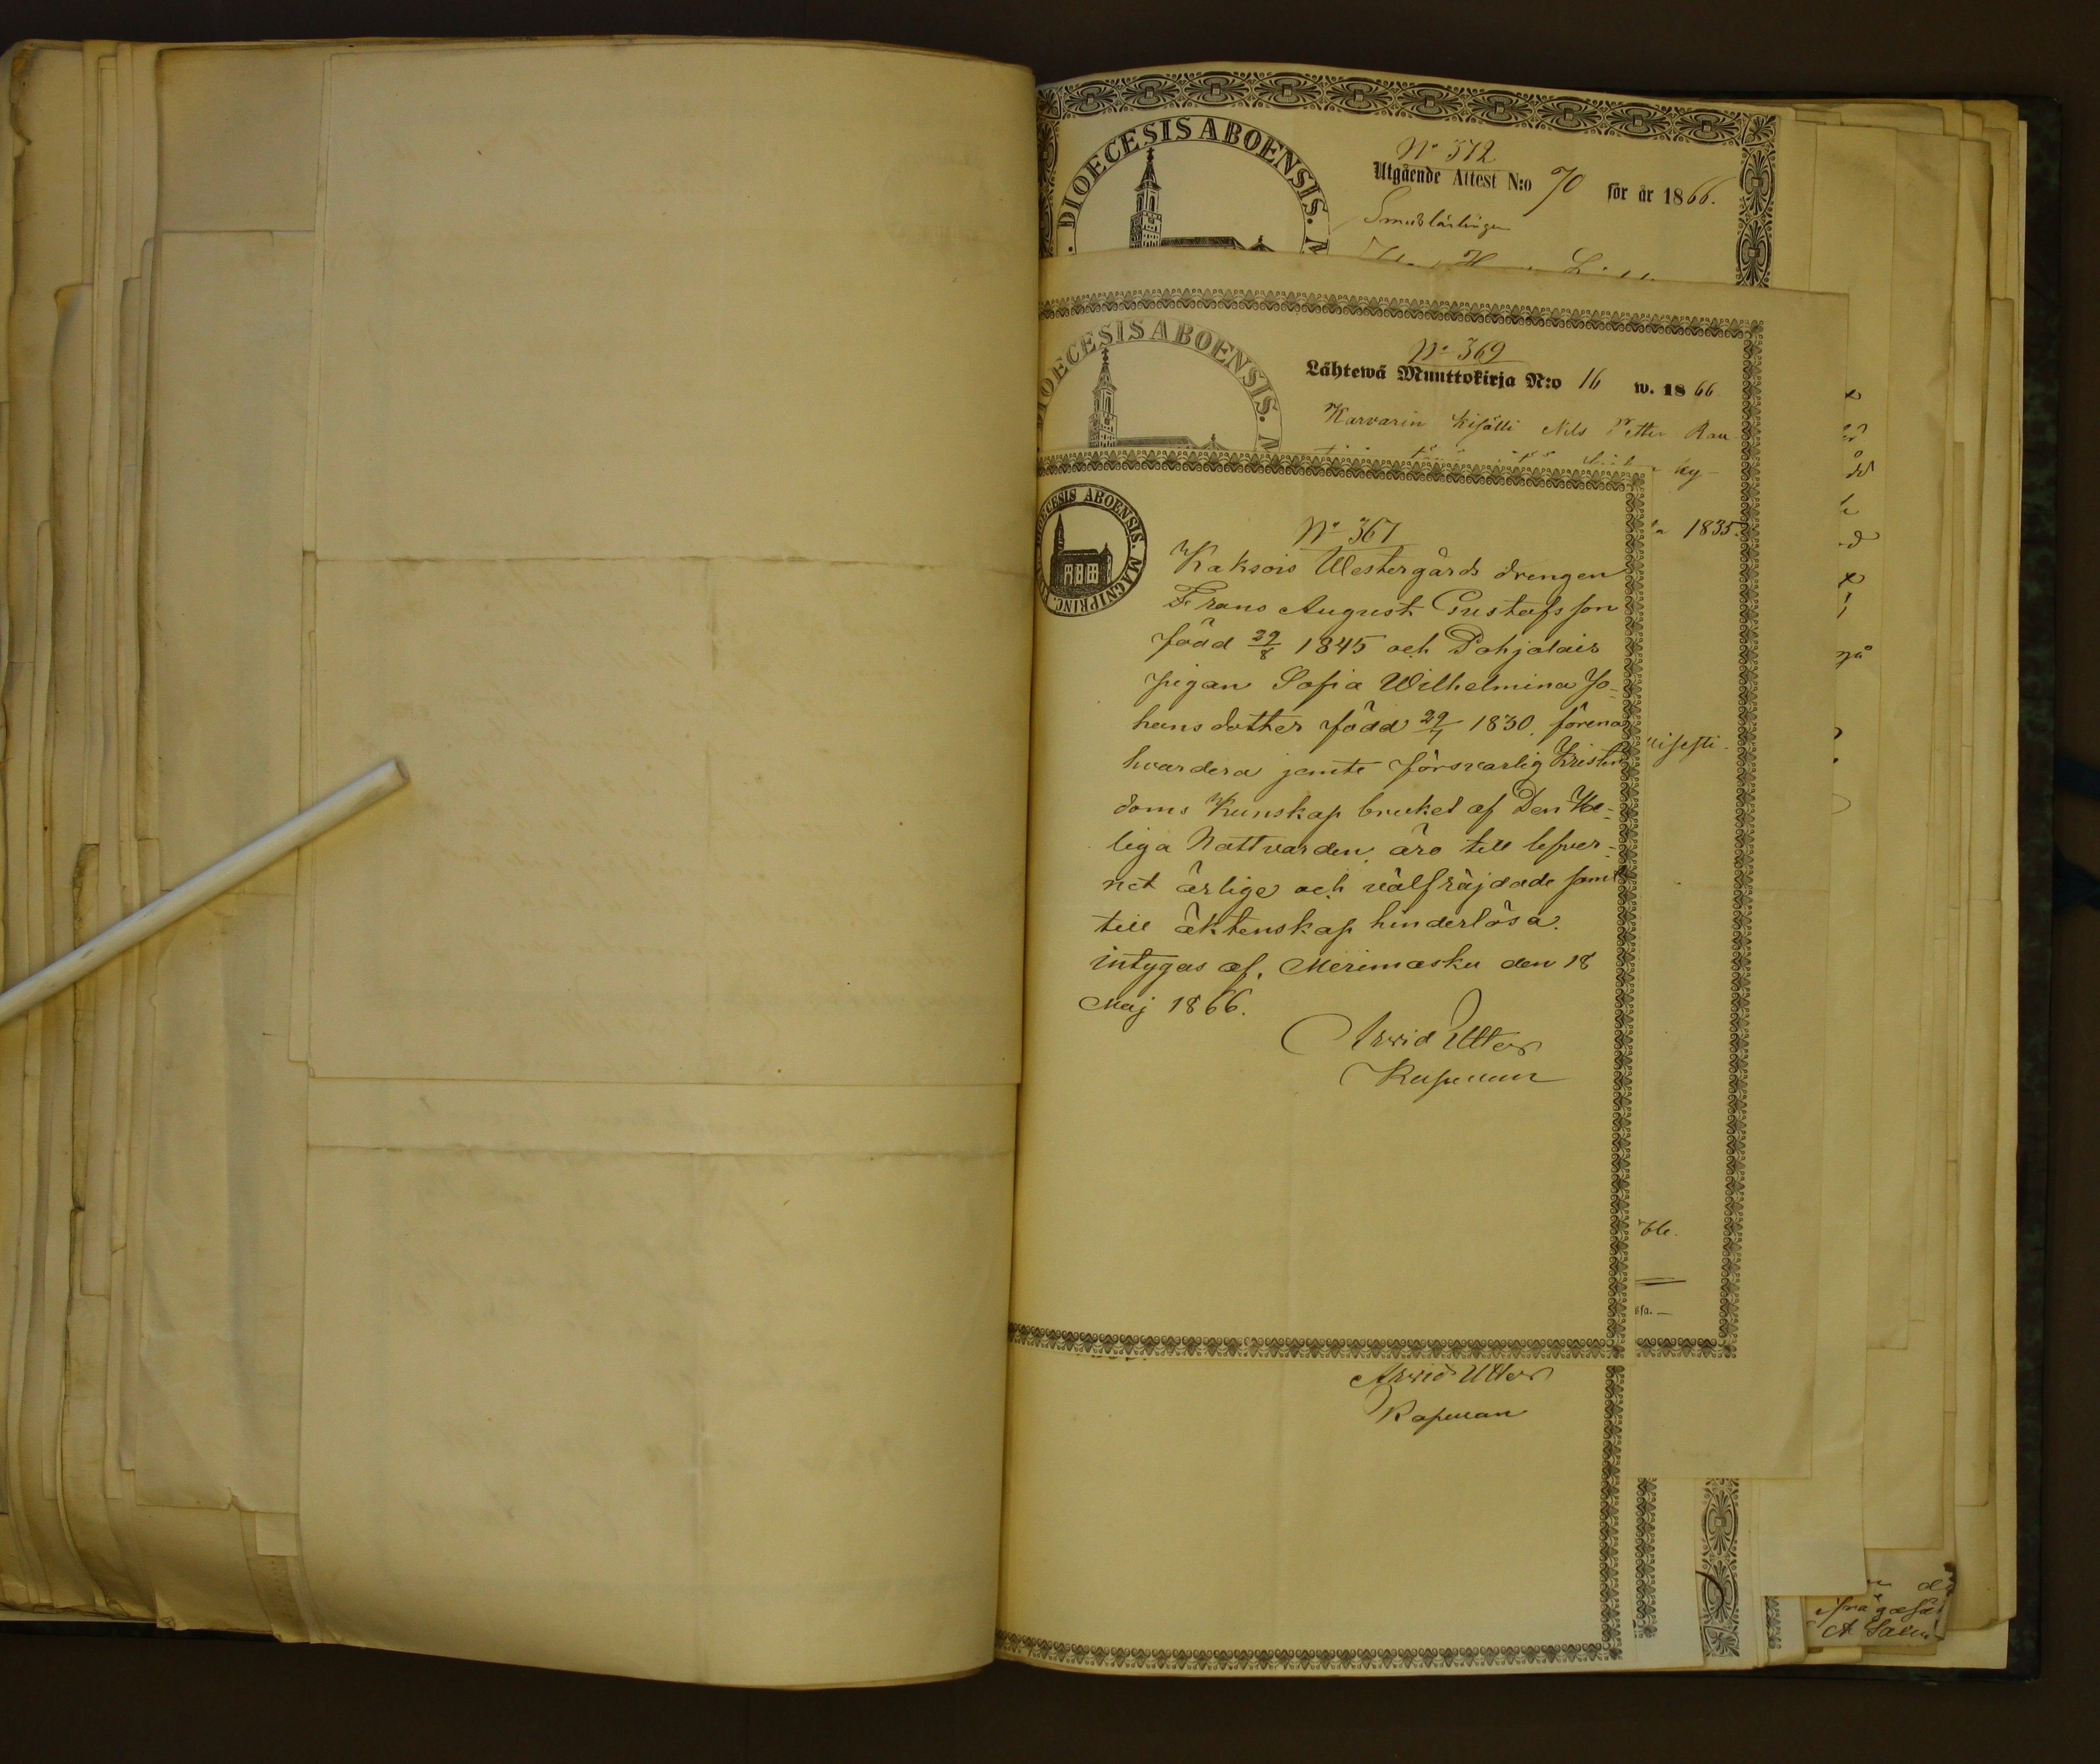 DIOECESIS ABOENSIS. M
No 372
Utgående Attest N:o 70 för år 1866.
OECESIS ABOENSIS. M
No 369
Lähtewä Muuttokirja N:o 16 w. 1866
Karvarin kisälli Nils Petter Rau-
ky-
1835.
DIOECESIS ABOENSIS. MAGNI PRINC.
No 367
Kaksois Westergårds drengen
Frans August Gustafsson
född 29/8 1845 och Pohjolais
pigan Sofia Wilhelmina Jo-
hansdotter född 29/7 1830, förena
hvardera jemte försvarlig Kristen
doms Kunskap bruket af Den He-
liga Nattvarden, äro till lefver-
net ärlige och välfräjdade samt
till äktenskap hinderlösa.
intygas af. Merimasku den 18
Maj 1866.
Arvid Utter
Kapellan
Arvid Utter
Kapellan